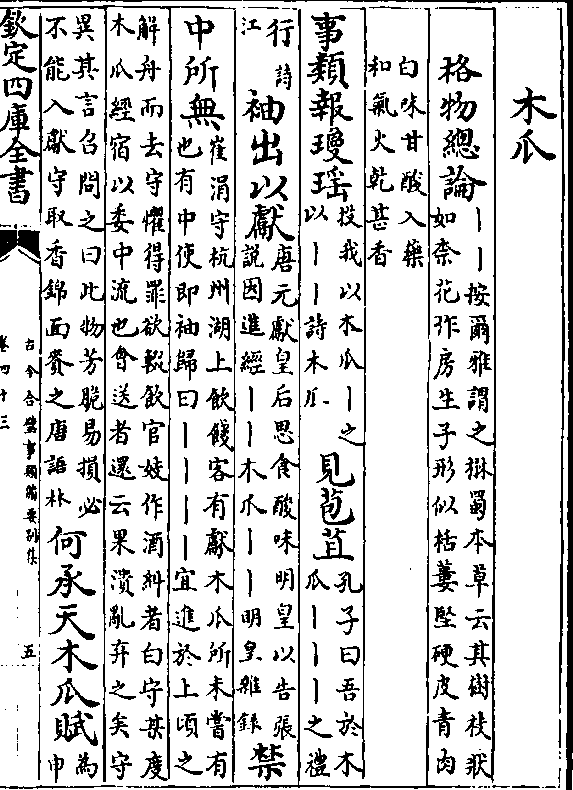 木瓜
格物總論
丨丨按爾雅謂之楙蜀本草云其樹枝狀
如柰花作房生子形似栝蔞堅硬皮青肉
白味甘酸入藥
和氣火乾甚香
事類報瓊瑤
投我以木瓜丨之
以丨丨詩木瓜
見苞苴
孔子曰吾於木
瓜丨丨丨之禮
行詩
江
袖出以獻
唐元獻皇后思食酸味明皇以告張
説因進經丨丨木瓜丨丨明皇雜錄
禁
中所無
崔涓守杭州湖上飲餞客有獻木瓜所未嘗有
也有中使即袖歸曰丨丨丨丨宜進於上頃之
解舟而去守懼得罪欲輟飲官妓作酒糾者白守某度
木瓜經宿以委中流也會送者還云果潰亂弃之矣守
異其言召問之曰此物芳脆易損必
不能入獻守取香錦面賚之唐語林
何承天木瓜賦
為
申
欽定四庫全書
古今合璧事類備要別集
卷四十三
五